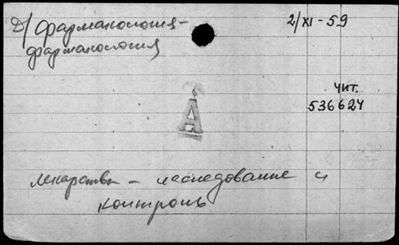 Д/ фармакология-
фармакология
2/XI-59
чит.
536624
А
лекарства - исследование и
контроль